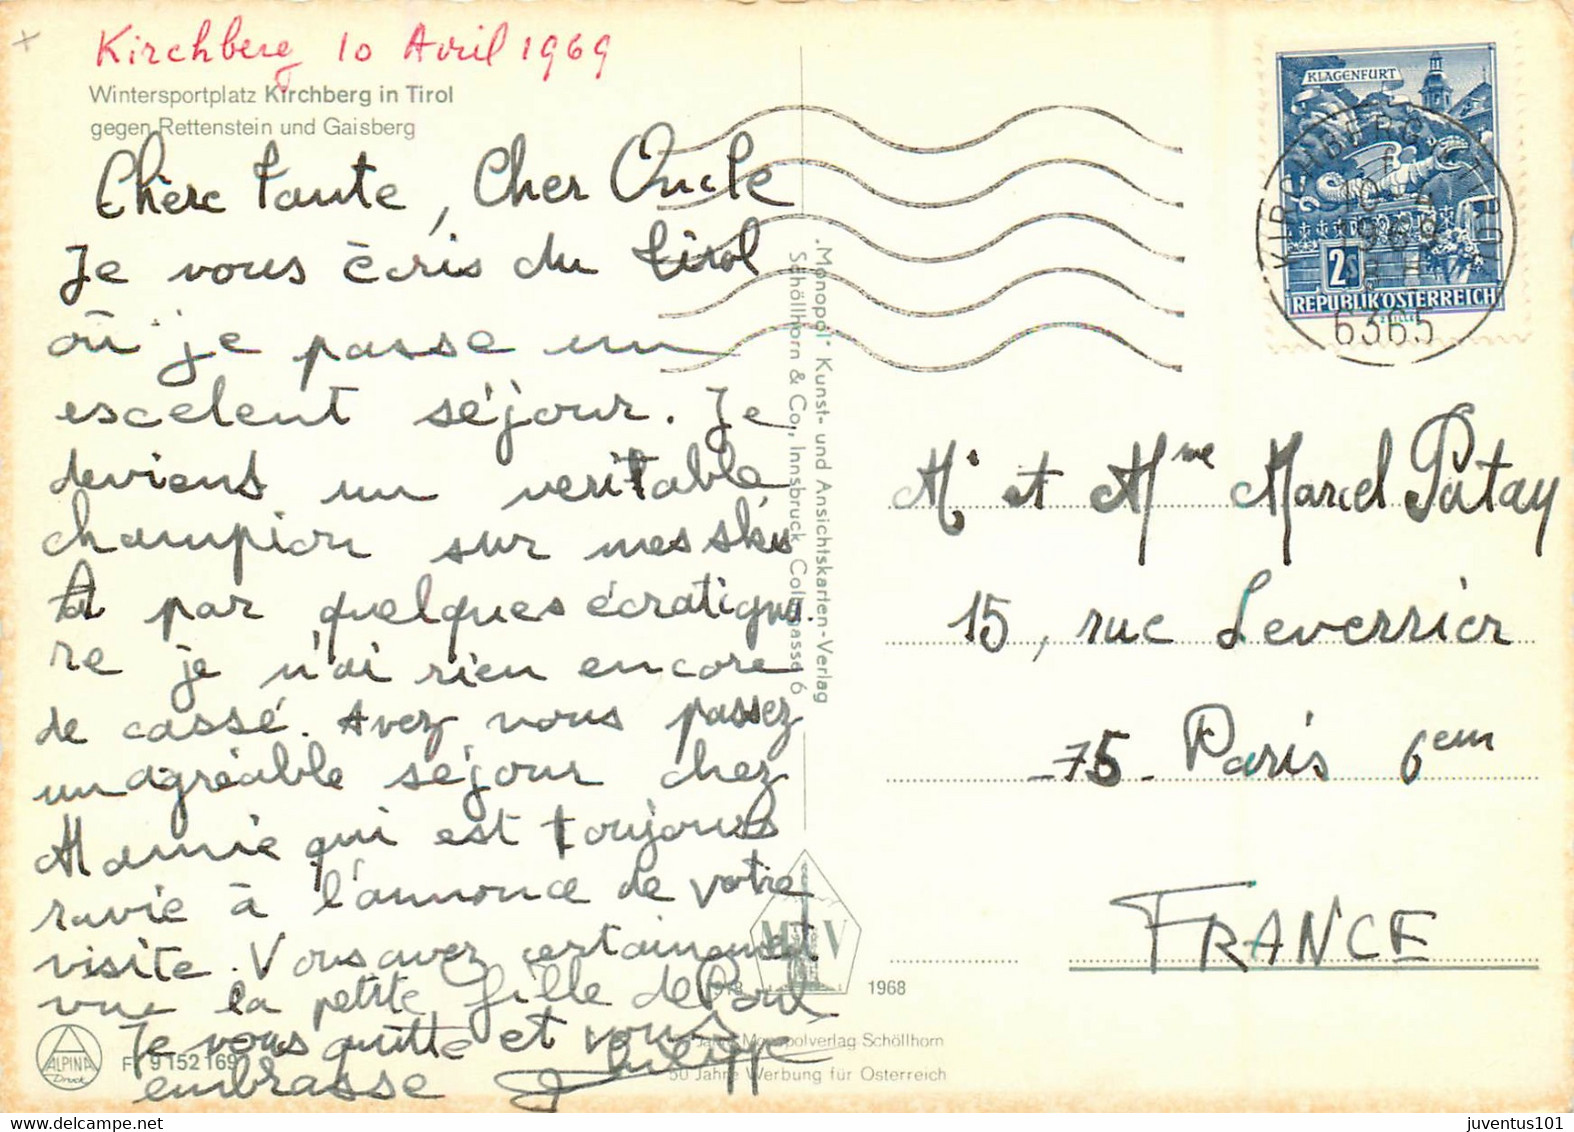 Kirchberg 10 Avril 1969
Wintersportplatz Kirchberg in Tirol
gegen Rettenstein und Gaisberg
Chère Tante, Cher Oncle
Je vous écris du tirol
où je passe un
escelent séjour. Je
deviens un veritable
champion sur mes skis
A par quelques écratignu
re je n'ai rien encore
de cassé. Avez vous passez
un agréable séjour chez
Mamie qui est toujours
ravie à l'annonce de votre
visite. Vous avez certainement
vue la petite fille de Paul
Je vous quitte et vous
embrasse Philippe
"Monopol" Kunst- und Ansichtskarten-Verlag
Schöllhorn & Co., Innsbruck, Colingasse 6
KLAGENFURT
2s
REPUBLIK ÖSTERREICH
KIRCHBERG TIROL
6365
Mr et Mme Marcel Patay
15, rue Leverrier
-75- Paris 6em
FRANCE
M V
1918 1968
50 Jahre Monopolverlag Schöllhorn
50 Jahre Werbung für Österreich
ALPINA
Druck
F 9 152 169
juventus101